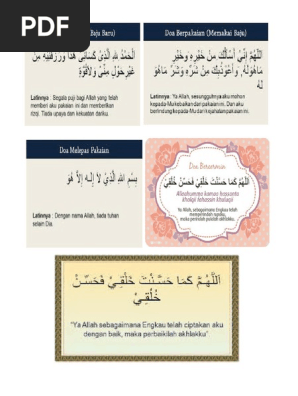 PDF
(Baju Baru)
الْحَمْدُ لِلَّهِ الَّذِي كَسَانِي هَذَا وَرَزَقَنِيهِ مِنْ
غَيْرِ حَوْلٍ مِنِّي وَلَا قُوَّةٍ
Latinnya : Segala puji bagi Allah yang telah
memberi aku pakaian ini dan memberikan
rizqi. Tiada upaya dan kekuatan dariku.
Doa Berpakaian (Memakai Baju)
اللَّهُمَّ إِنِّي أَسْأَلُكَ مِنْ خَيْرِهِ وَخَيْرِ
مَاهُوَلَهُ وَأَعُوذُبِكَ مِنْ شَرِّهِ وَشَرِّ مَاهُوَ
لَهُ
Latinnya : Ya Allah, sesungguhnya aku mohon
kepada Mu kebaikan dari pakaian ini. Dan aku
berlindung kepada-Mu dari kejahatan pakaian ini.
Doa Melepas Pakaian
بِسْمِ اللهِ الَّذِيْ لَا إِلَهَ إِلَّا هُوَ
Latinnya : Dengan nama Allah, tiada tuhan
selain Dia.
Doa Bercermin
اَللّٰهُمَّ كَمَا حَسَّنْتَ خَلْقِيْ فَحَسِّنْ خُلُقِيْ
Allaahumma kamaa hassanta
khalqii fahassin khuluqii
Ya Allah, sebagaimana Engkau telah
maka perindah pulalah akhlakku.
اَللّٰهُمَّ كَمَا حَسَّنْتَ خَلْقِيْ فَحَسِّنْ
خُلُقِيْ
"Ya Allah sebagaimana Engkau telah ciptakan aku
dengan baik, maka perbaikilah akhlakku"